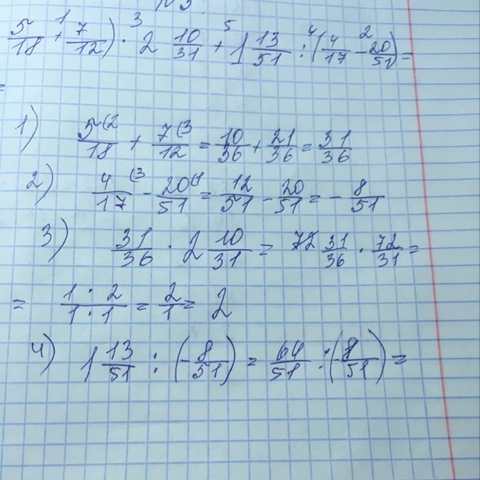 5/18 + 7/12) · 2 10/31 + 1 13/51 : (4/17 - 20/51) =
1) 5/18 (2 + 7/12 (3 = 10/36 + 21/36 = 31/36
2) 4/17 (3 - 20/51 (1 = 12/51 - 20/51 = - 8/51
3) 31/36 · 2 10/31 = 31/36 · 72/31 =
= 1 · 2/1 · 1 = 2/1 = 2
4) 1 13/51 : (- 8/51) = 64/51 : (- 8/51) =